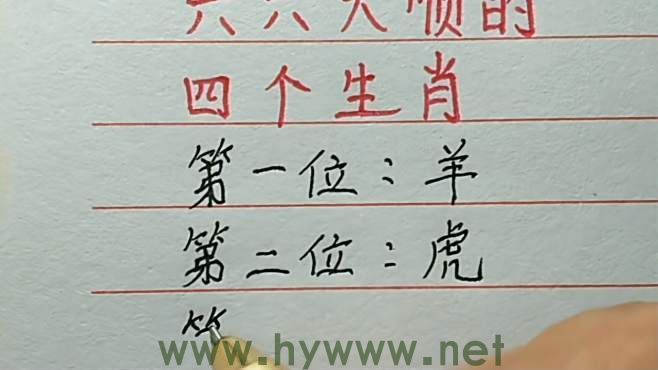 六六大顺的
四个生肖
第一位：羊
第二位：虎
www.hywww.net